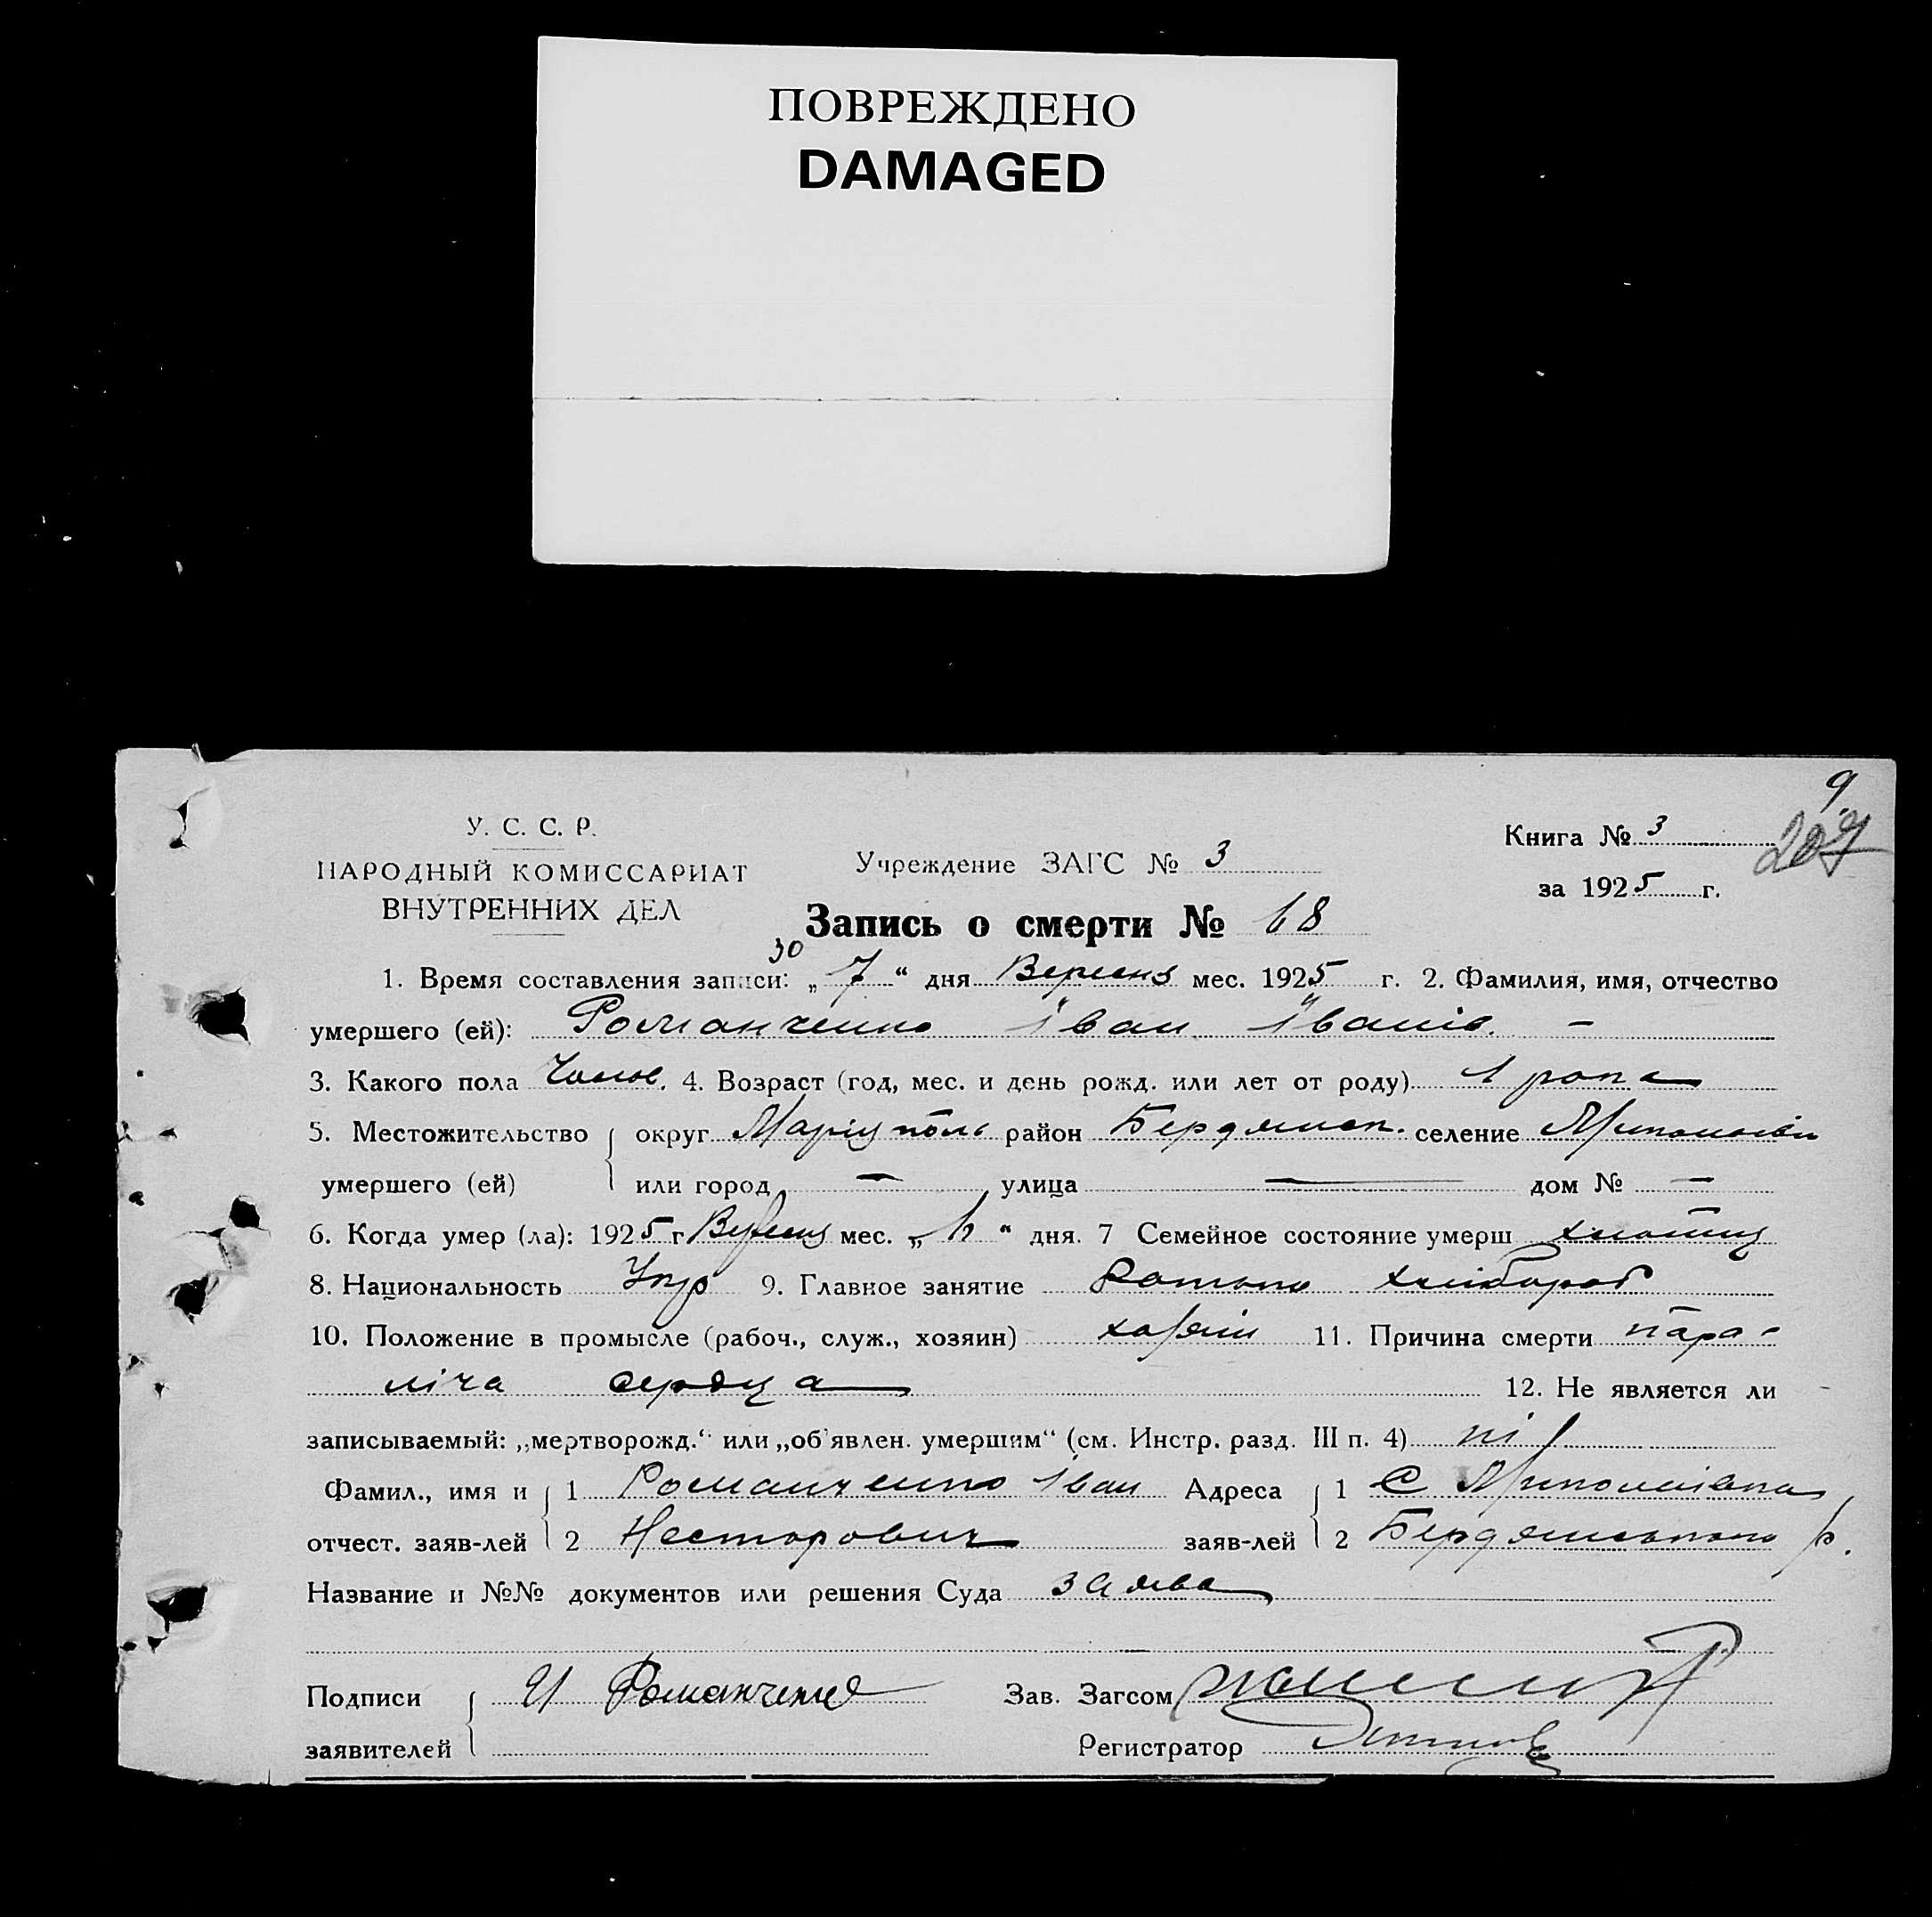 ПОВРЕЖДЕНО
DAMAGED
9
207
У. С. С. Р.
НАРОДНЫЙ КОМИССАРИАТ
ВНУТРЕННИХ ДЕЛ
Учреждение ЗАГС № 3
Книга № 3
за 1925 г.
Запись о смерти № 68
30
1. Время составления записи: „ 7 “ дня Вересня мес. 1925 г. 2. Фамилия, имя, отчество
умершего (ей): Романченко Іван Іванів. –
3. Какого пола Чолов. 4. Возраст (год, мес. и день рожд. или лет от роду) 1 рока
5. Местожительство округ Маріуполь район Бердянськ. селение
умершего (ей) или город — улица — дом № —
6. Когда умер (ла): 1925 г Вересня мес. „ “ дня. 7 Семейное состояние умерш хлопець
8. Национальность Укр 9. Главное занятие Батько хлібороб
10. Положение в промысле (рабоч., служ., хозяин) хазяїн 11. Причина смерти пара-
ліча сердца 12. Не является ли
записываемый: „мертворожд.“ или „об'явлен. умершим“ (см. Инстр. разд. III п. 4) ні
Фамил., имя и 1 Романченко Іван Адреса 1 С
отчест. заяв-лей 2 Несторович заяв-лей 2 Бердянського р.
Название и №№ документов или решения Суда заява
Подписи И Романченко Зав. Загсом
заявителей Регистратор